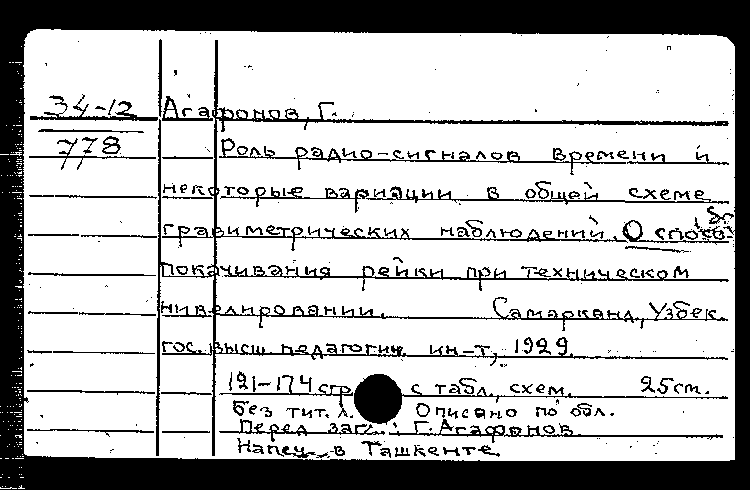 34-12
778
Агафонов, Г.
Роль радио-сигналов времени и
некоторые вариации в общей схеме
гравиметрических наблюдений. О
покачивания рейки при техническом
нивелировании. Самарканд, Узбек.
гос. высш. педагогич. ин-т, 1929.
121-174 стр. с табл., схем. 25 см.
Без тит. л. Описано по обл.
Перед загл.: Г. Агафонов.
Напеч. в Ташкенте.